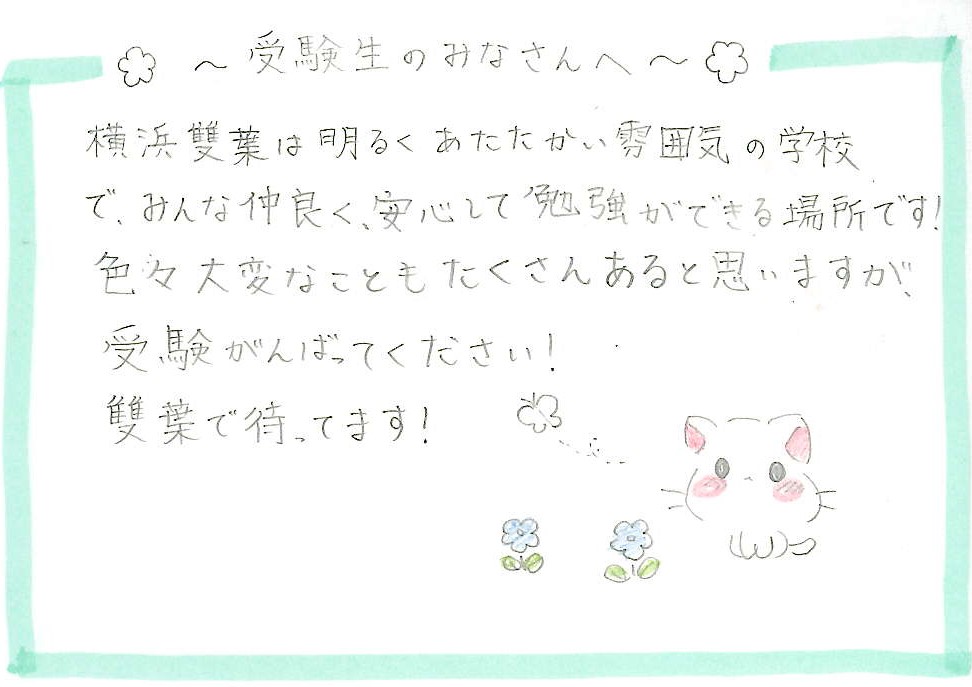 ～受験生のみなさんへ～
横浜雙葉は明るくあたたかい雰囲気の学校
で、みんな仲良く、安心して勉強ができる場所です!
色々大変なこともたくさんあると思いますが、
受験がんばってください!
雙葉で待ってます!